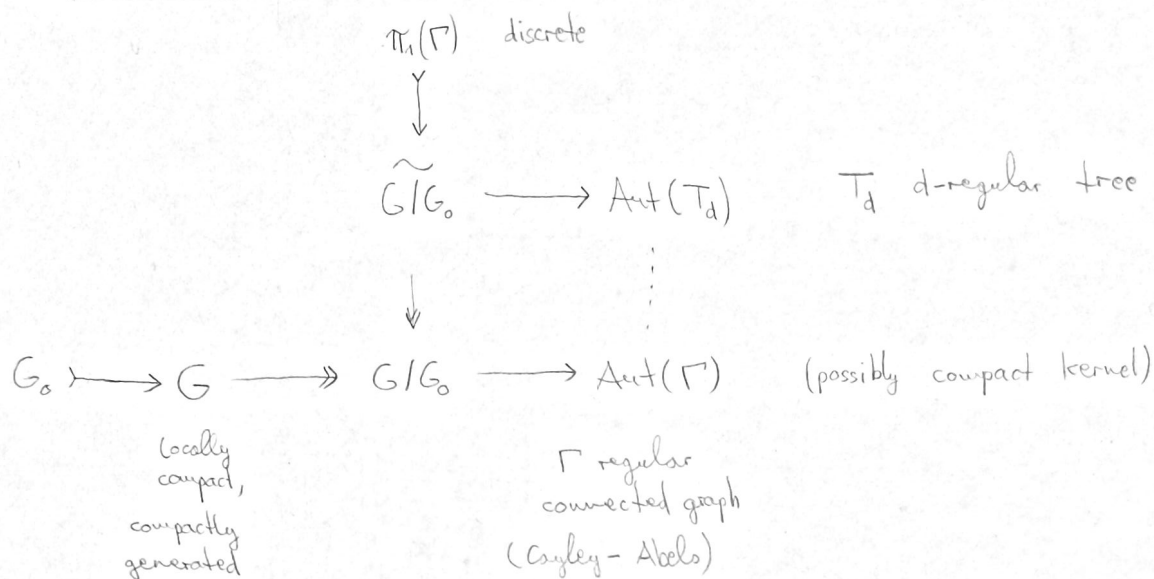 π₁(Γ) discrete
G̃/G₀ → Aut(T_d) T_d d-regular tree
G₀ ↣ G ↠ G/G₀ → Aut(Γ) (possibly compact kernel)
locally
compact,
compactly
generated
Γ regular
connected graph
(Cayley-Abels)